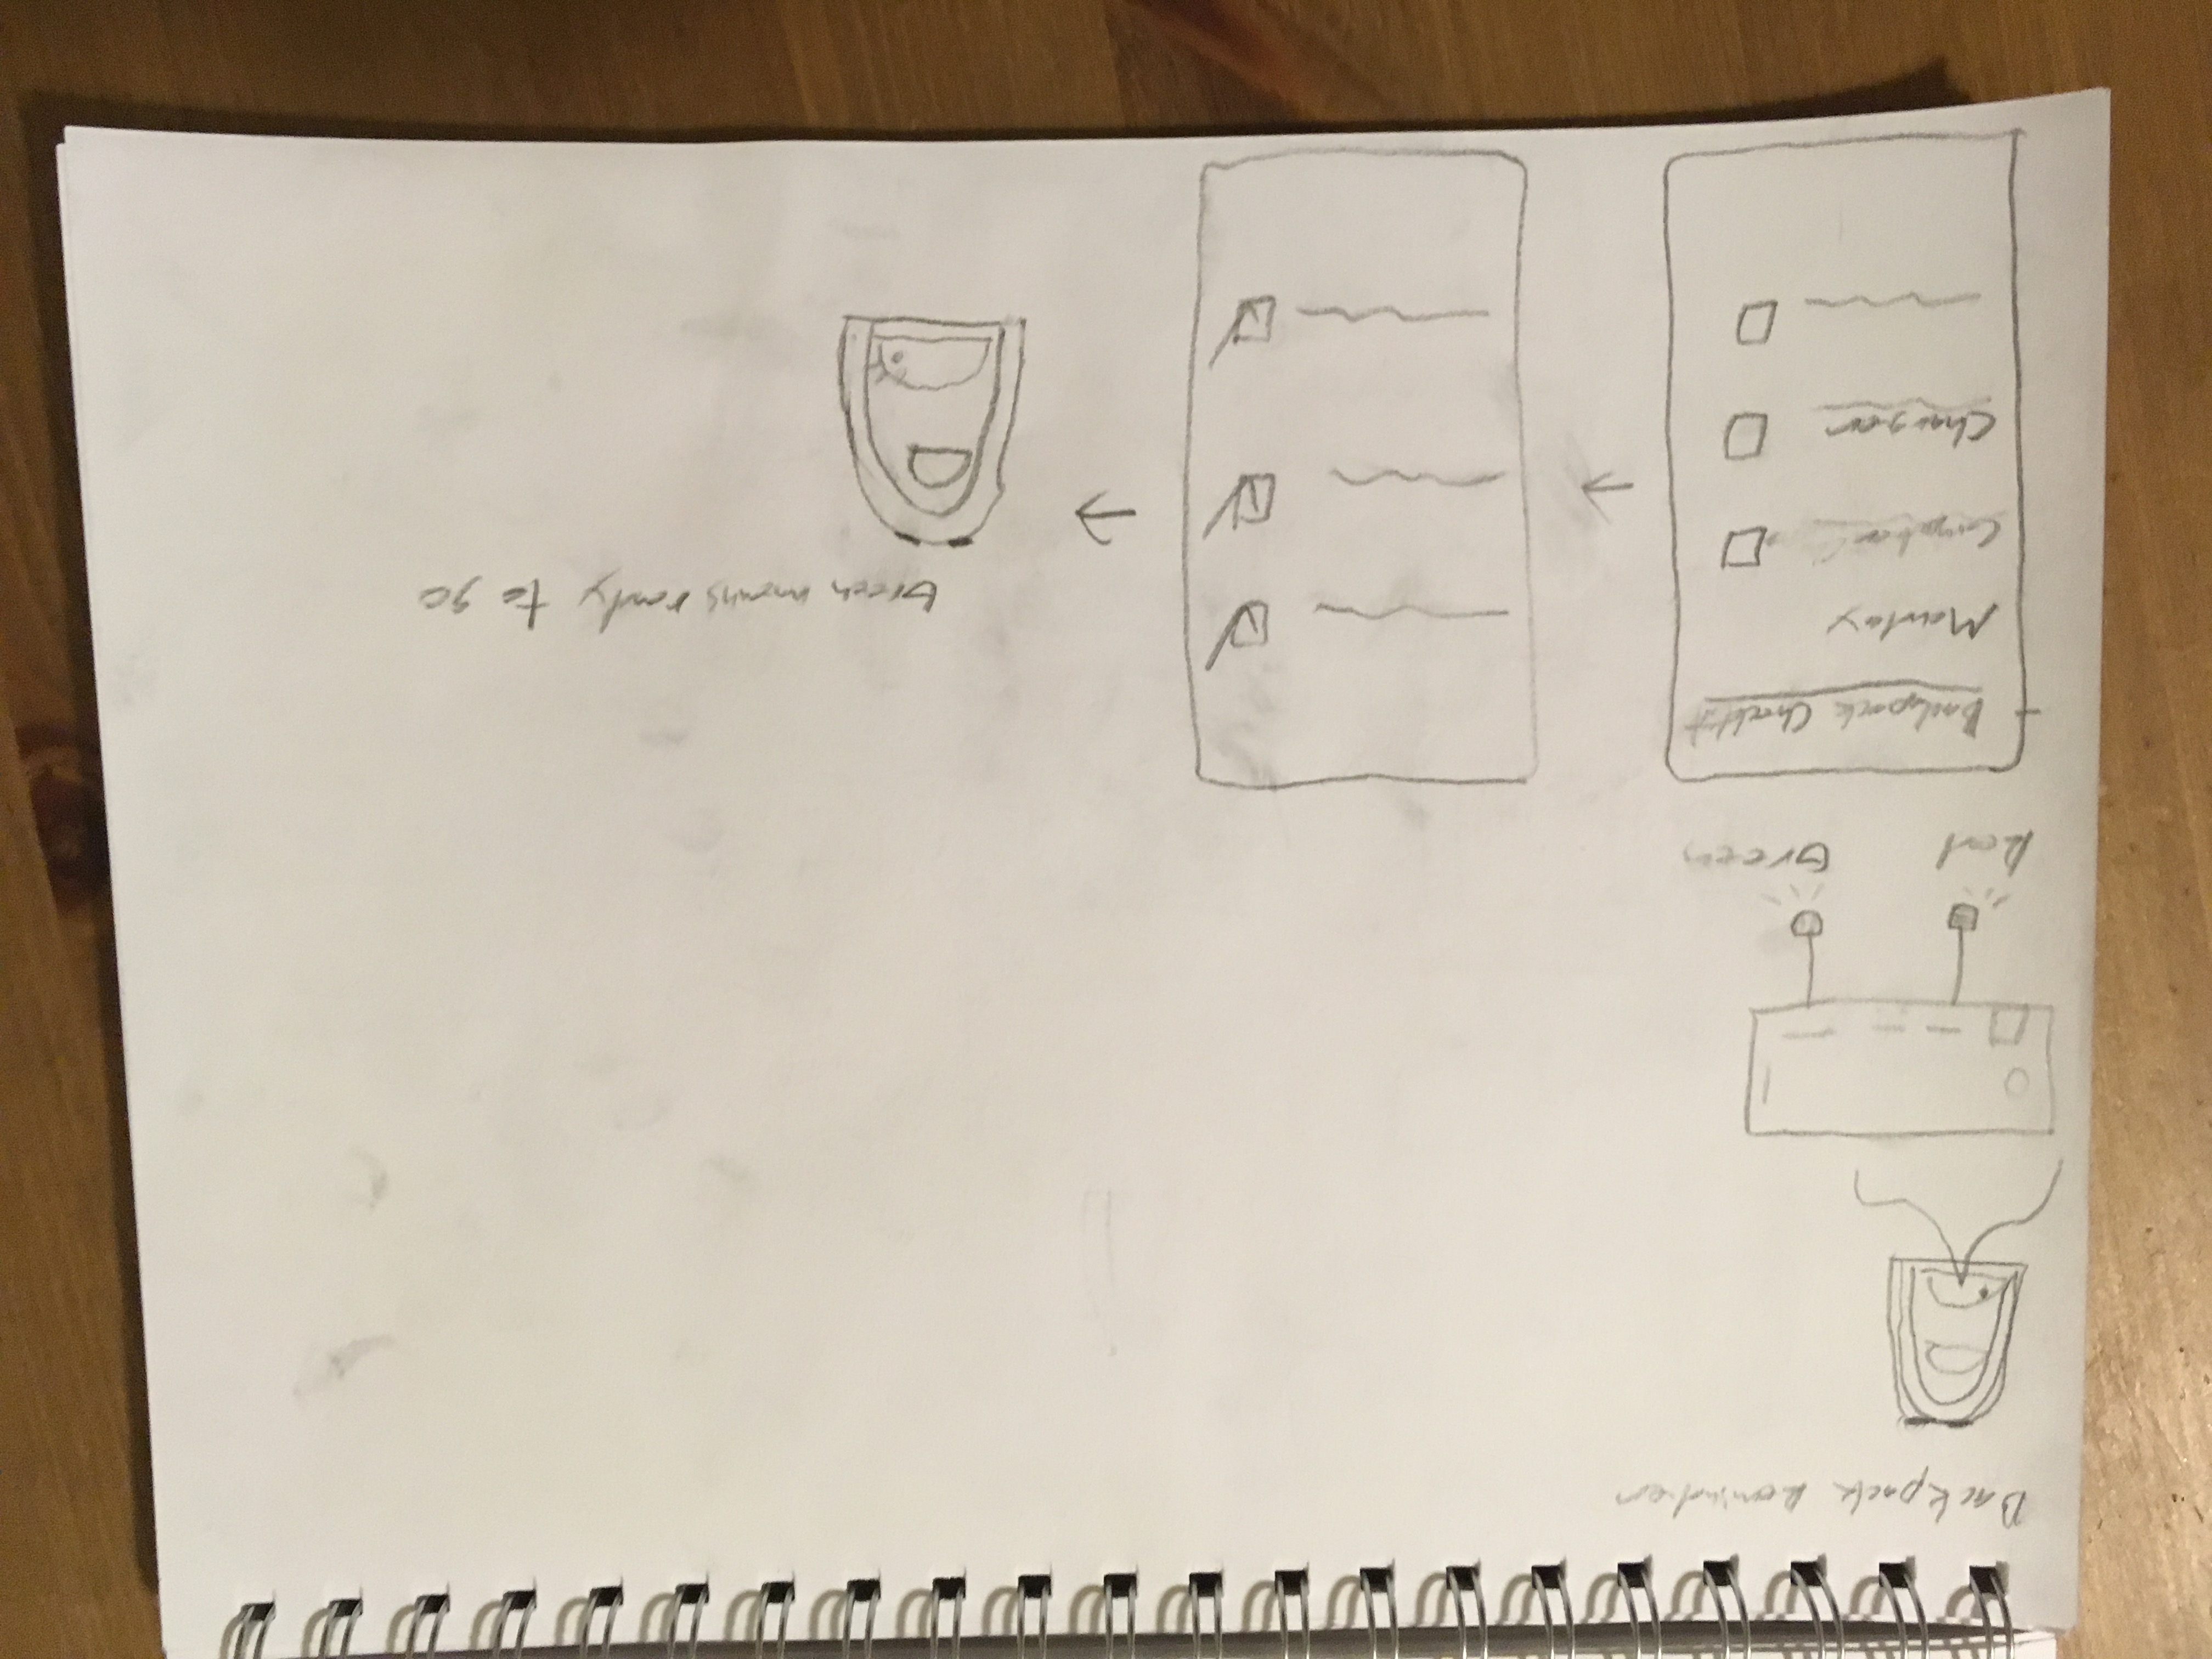 Backpack Reminder
Red
Green
Backpack Checklist
Monday
Computer
Charger
Green means ready to go